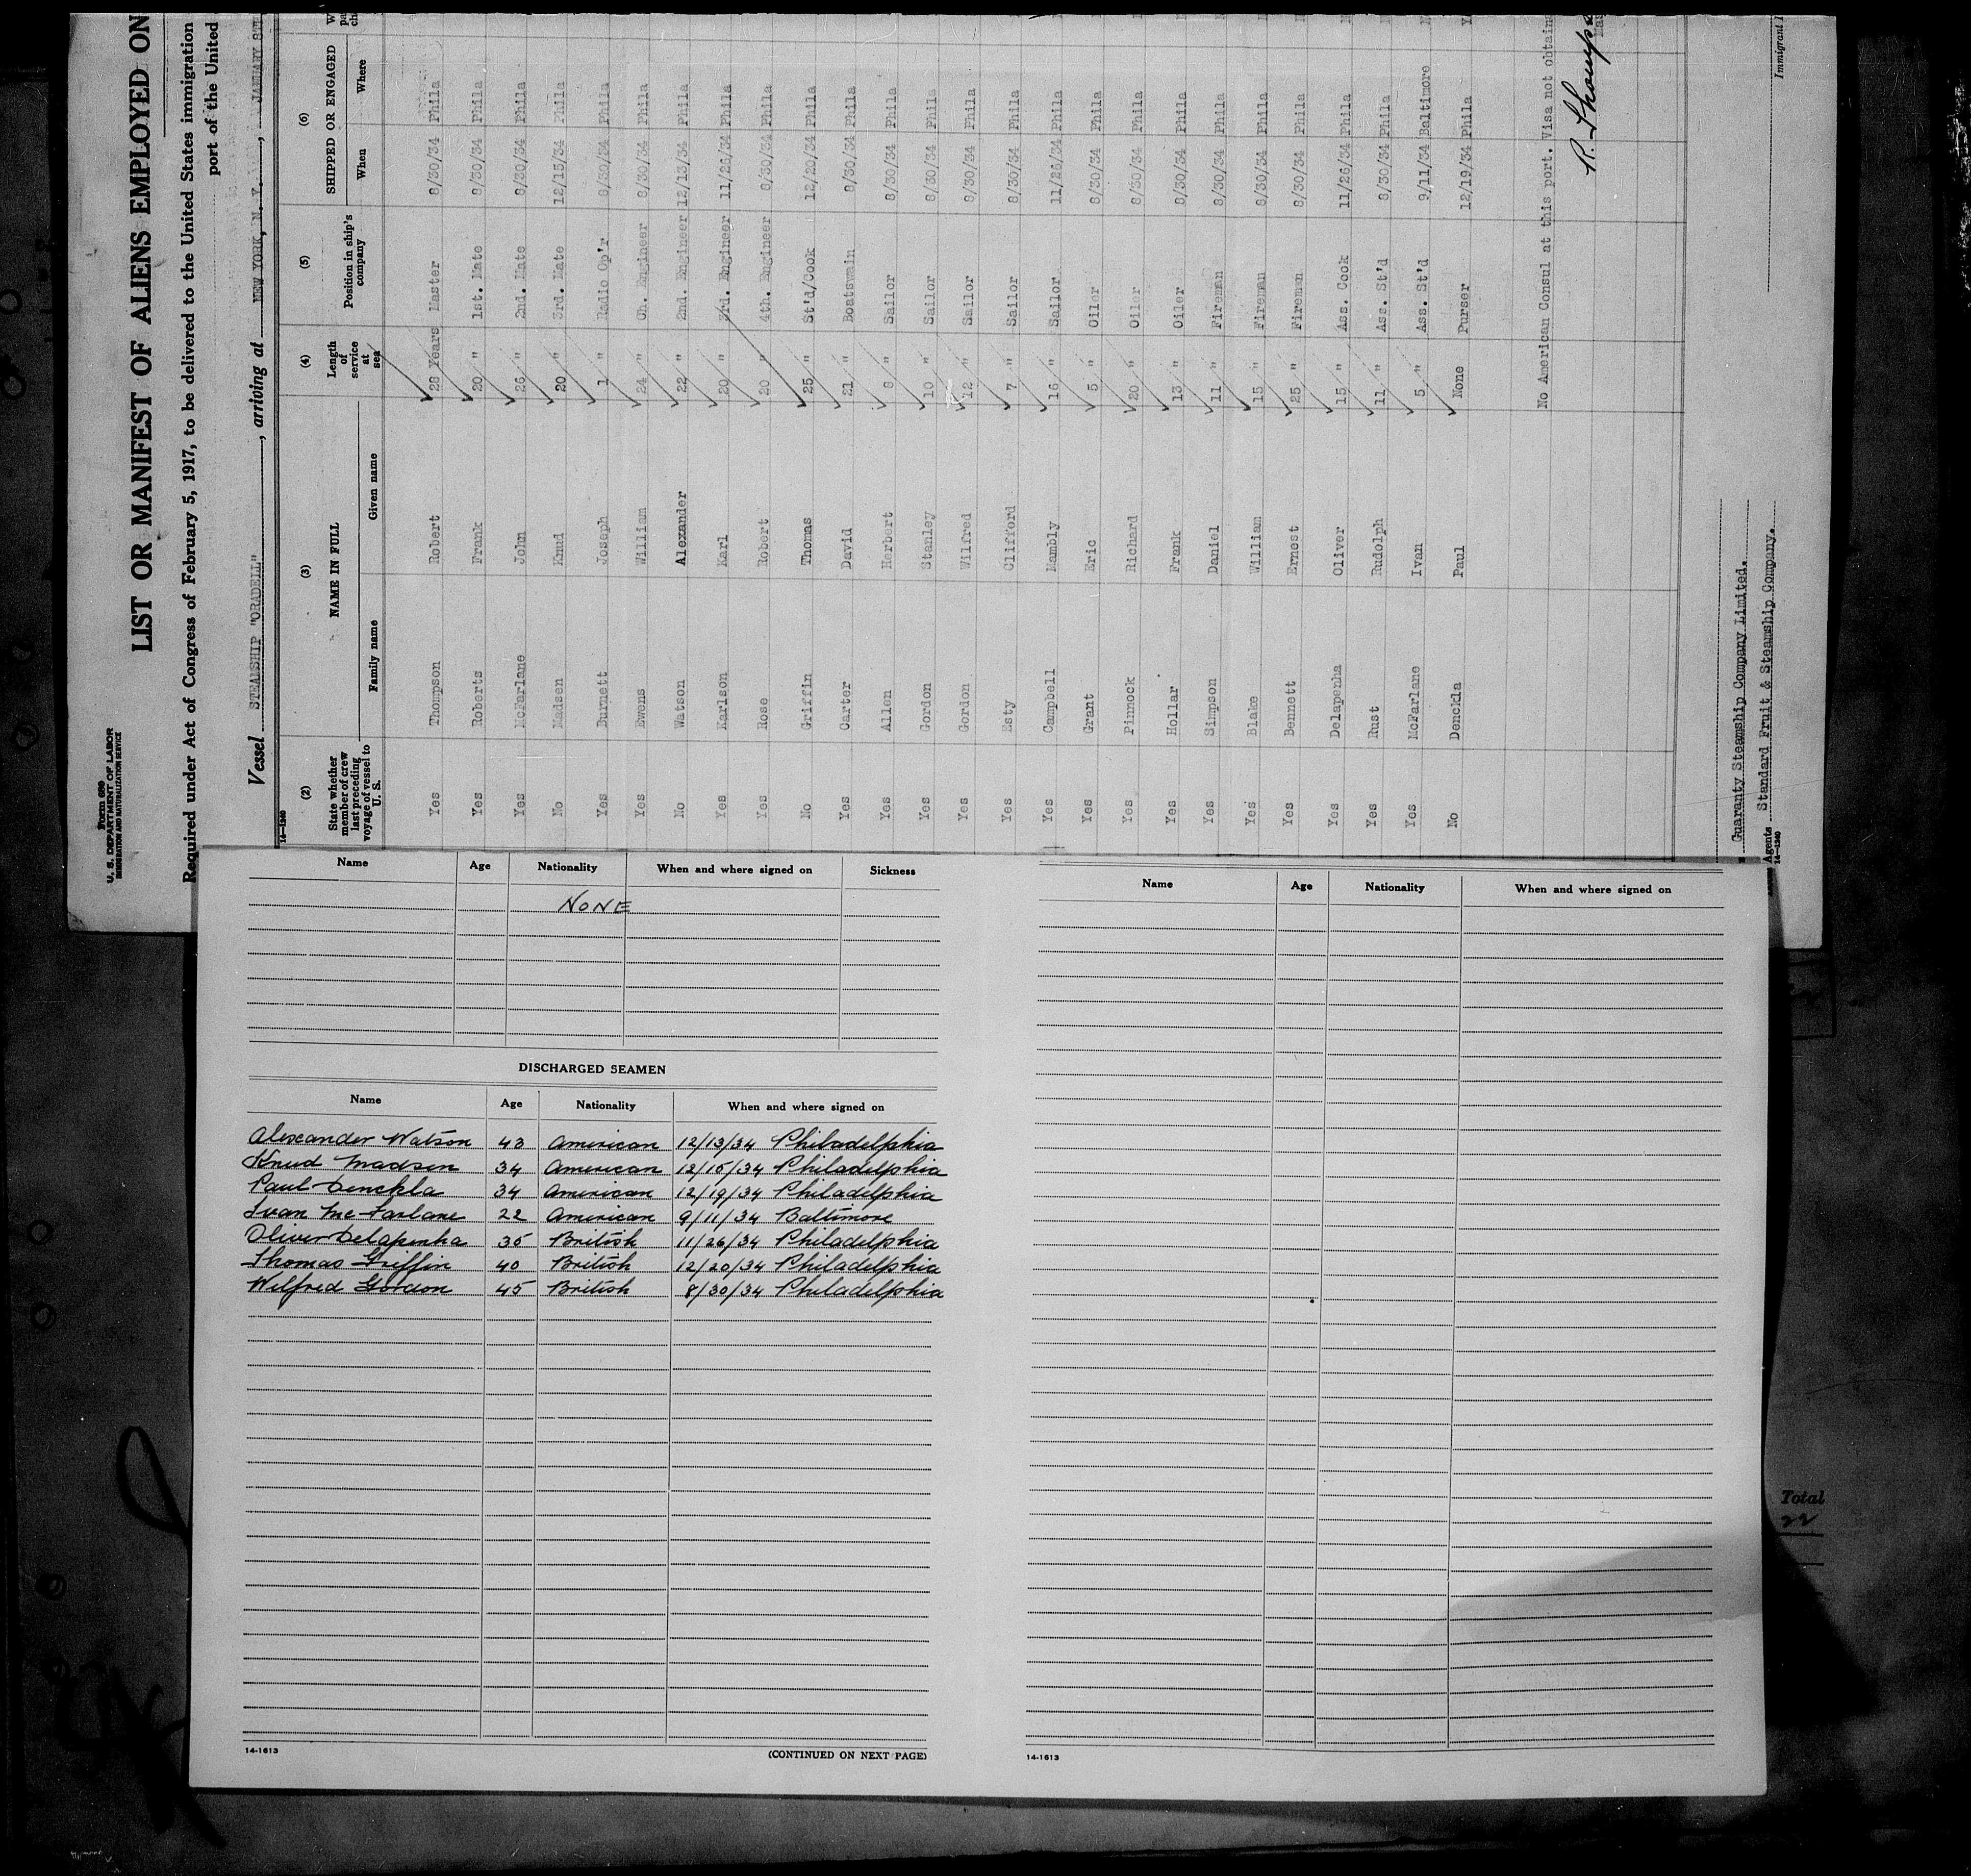 Form 680
U. S. DEPARTMENT OF LABOR
IMMIGRATION AND NATURALIZATION SERVICE
LIST OR MANIFEST OF ALIENS EMPLOYED ON
Required under Act of Congress of February 5, 1917, to be delivered to the United States immigration
port of the United
Vessel STEAMSHIP "ORADELL", arriving at NEW YORK, N. Y., JANUARY 8T
14—1240
(2) (3) (4) (5) (6)
State whether member of crew last preceding voyage of vessel to U. S. NAME IN FULL Length of service at sea Position in ship's company SHIPPED OR ENGAGED
Family name Given name When Where
Yes Thompson Robert 28 Years Master 8/30/34 Phila
Yes Roberts Frank 20 " 1st. Mate 8/30/34 Phila
Yes McFarlane John 26 " 2nd. Mate 8/30/34 Phila
No Madsen Knud 20 " 3rd. Mate 12/15/34 Phila
Yes Burnett Joseph 1 " Radio Op'r 8/30/34 Phila
Yes Ewens William 24 " Ch. Engineer 8/30/34 Phila
No Watson Alexander 22 " 2nd. Engineer 12/13/34 Phila
Yes Karlson Karl 20 " 3rd. Engineer 11/26/34 Phila
Yes Rose Robert 20 " 4th. Engineer 8/30/34 Phila
No Griffin Thomas 25 " St'd/Cook 12/20/34 Phila
Yes Carter David 21 " Boatswain 8/30/34 Phila
Yes Allen Herbert 8 " Sailor 8/30/34 Phila
Yes Gordon Stanley 10 " Sailor 8/30/34 Phila
Yes Gordon Wilfred 12 " Sailor 8/30/34 Phila
Yes Esty Clifford 7 " Sailor 8/30/34 Phila
Yes Campbell Mambly 16 " Sailor 11/26/34 Phila
Yes Grant Eric 5 " Oiler 8/30/34 Phila
Yes Pinnock Richard 20 " Oiler 8/30/34 Phila
Yes Hollar Frank 13 " Oiler 8/30/34 Phila
Yes Simpson Daniel 11 " Fireman 8/30/34 Phila
Yes Blake William 15 " Fireman 8/30/34 Phila
Yes Bennett Ernest 25 " Fireman 8/30/34 Phila
Yes Delapenha Oliver 15 " Ass. Cook 11/26/34 Phila
Yes Rust Rudolph 11 " Ass. St'd 8/30/34 Phila
Yes McFarlane Ivan 5 " Ass. St'd 9/11/34 Baltimore
No Denckla Paul None Purser 12/19/34 Phila
No American Consul at this port. Visa not obtain
R. Thomps
Guaranty Steamship Company Limited.
Agents Standard Fruit & Steamship Company.
14—1240
Immigrant I
Name Age Nationality When and where signed on Sickness
NONE
DISCHARGED SEAMEN
Name Age Nationality When and where signed on
Alexander Watson 43 American 12/13/34 Philadelphia
Knud Madsen 34 American 12/15/34 Philadelphia
Paul Denckla 34 American 12/19/34 Philadelphia
Ivan Mc Farlane 22 American 9/11/34 Baltimore
Oliver Delapenha 35 British 11/26/34 Philadelphia
Thomas Griffin 40 British 12/20/34 Philadelphia
Wilfred Gordon 45 British 8/30/34 Philadelphia
14-1613
(CONTINUED ON NEXT PAGE)
Name Age Nationality When and where signed on
14-1613
Total
22